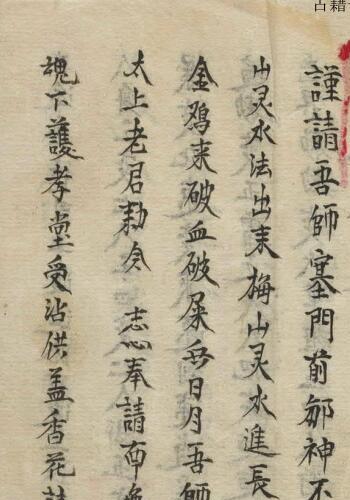 謹請吾師塞門前鄒神不
山灵水法出来梅山灵水進長
金鸡来破血破屎 日月吾師
太上老君勑令 志心奉請而
魂下護孝堂受沾供盖香花
古籍